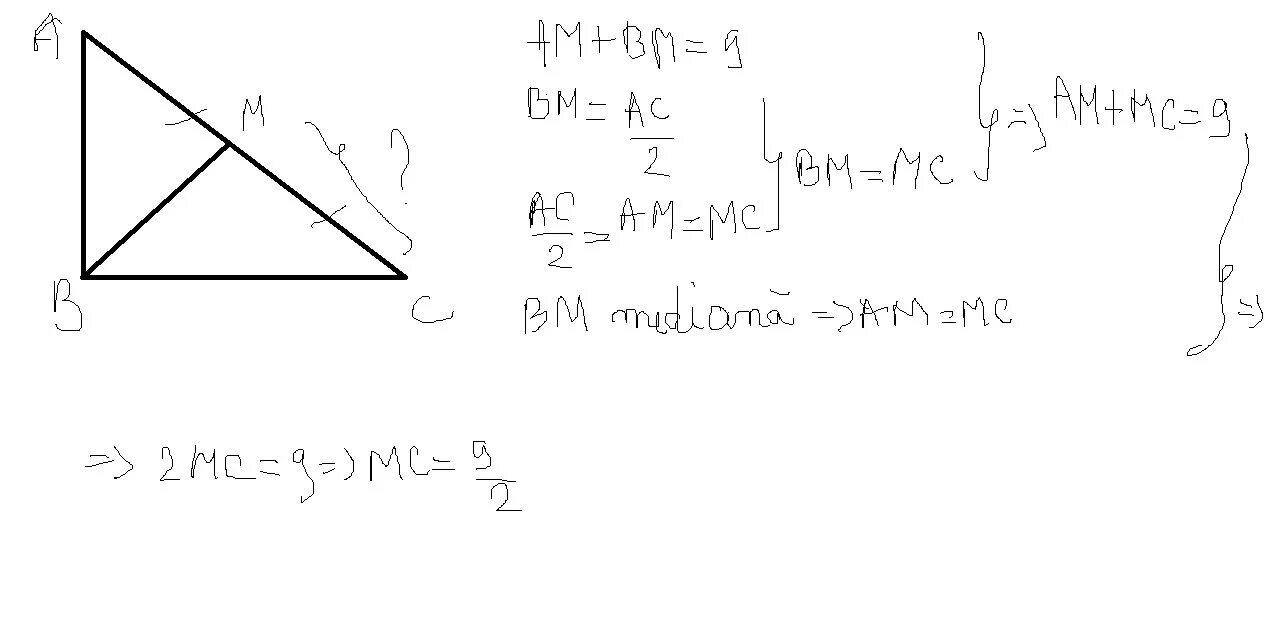 A
M
?
B
C
AM+BM=9
BM=AC/2
AC/2=AM=MC
BM=MC
=> AM+MC=9
BM mediană => AM=MC
=>
=> 2MC=9=> MC=9/2